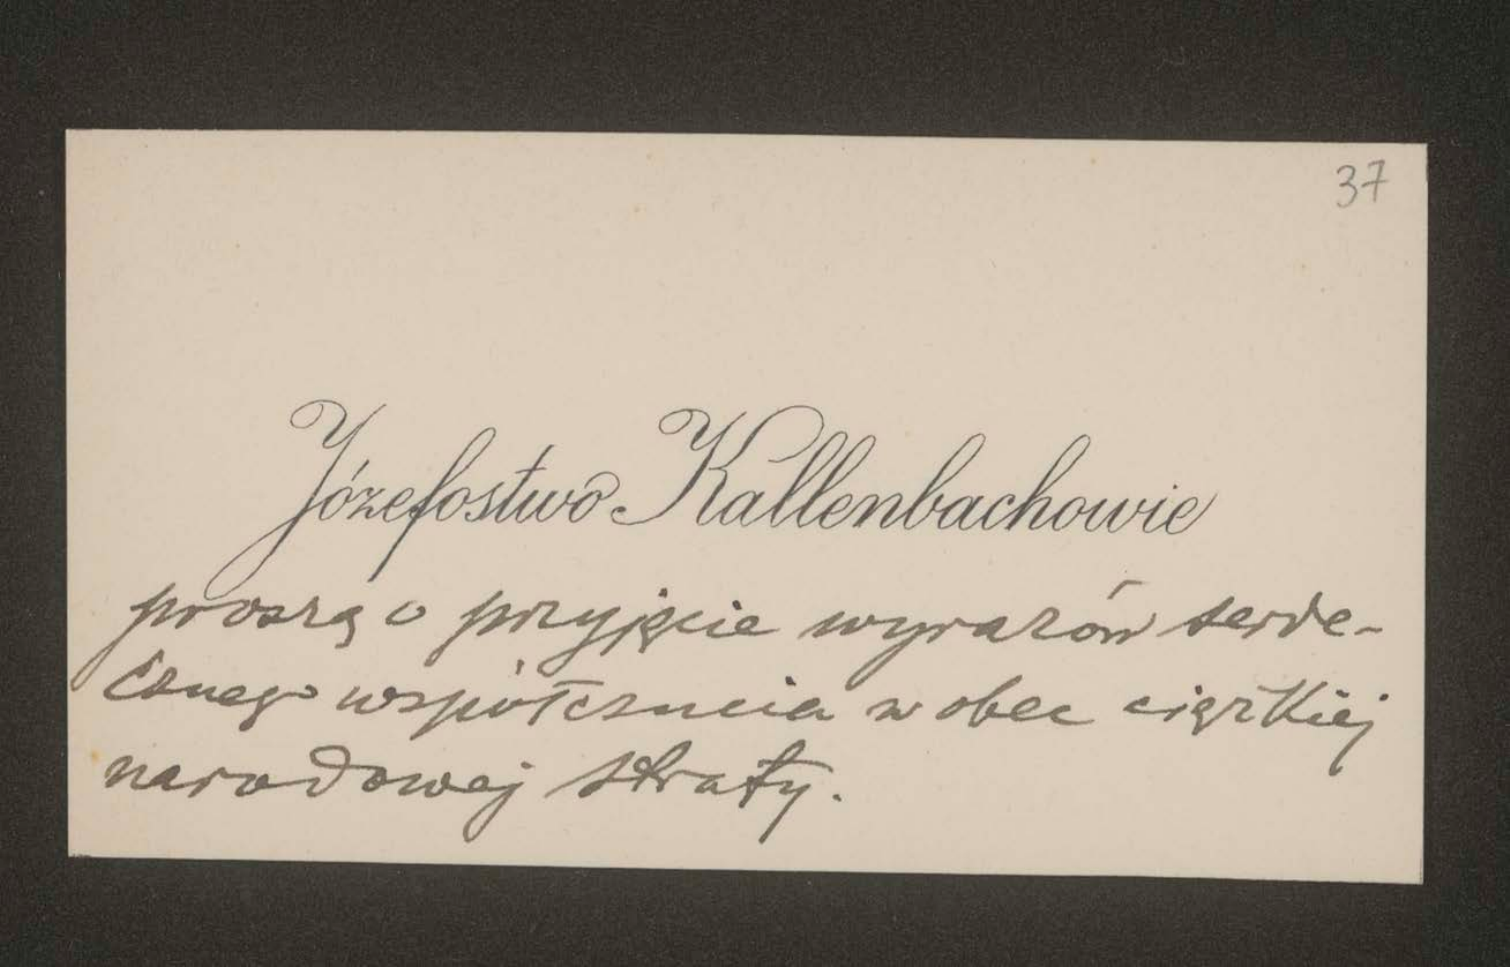 37
Józefostwo Kallenbachowie
proszą o przyjęcie wyrazów serde-
cznego współczucia w obec ciężkiej
narodowej straty.